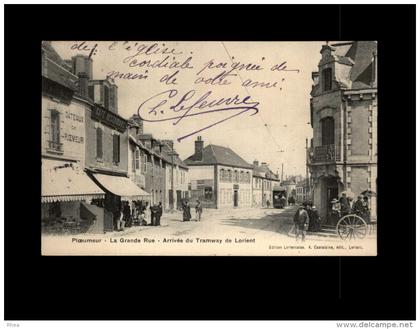 de l'église
cordiale poignée de
main de votre ami,
L. Lefeuvre
GATEAUX
DE
PLOEMEUR
Plœmeur - La Grande Rue - Arrivée du Tramway de Lorient
Édition Lorientaise. A. Castelaine, édit., Lorient.
Rhea
www.delcampe.net